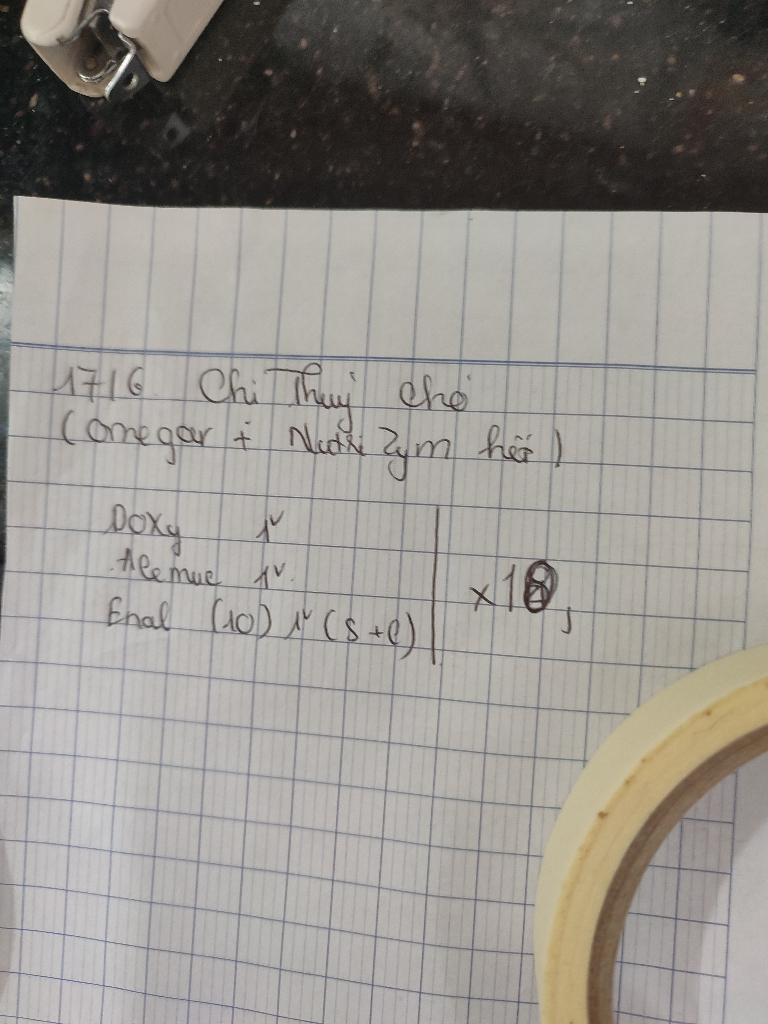 1716 Chi Thuý chó
(Omegar + Nutri Zym hết)
Doxy 1v
Alemuc 1v
Enal (10) 1v (s + c)
x 18,